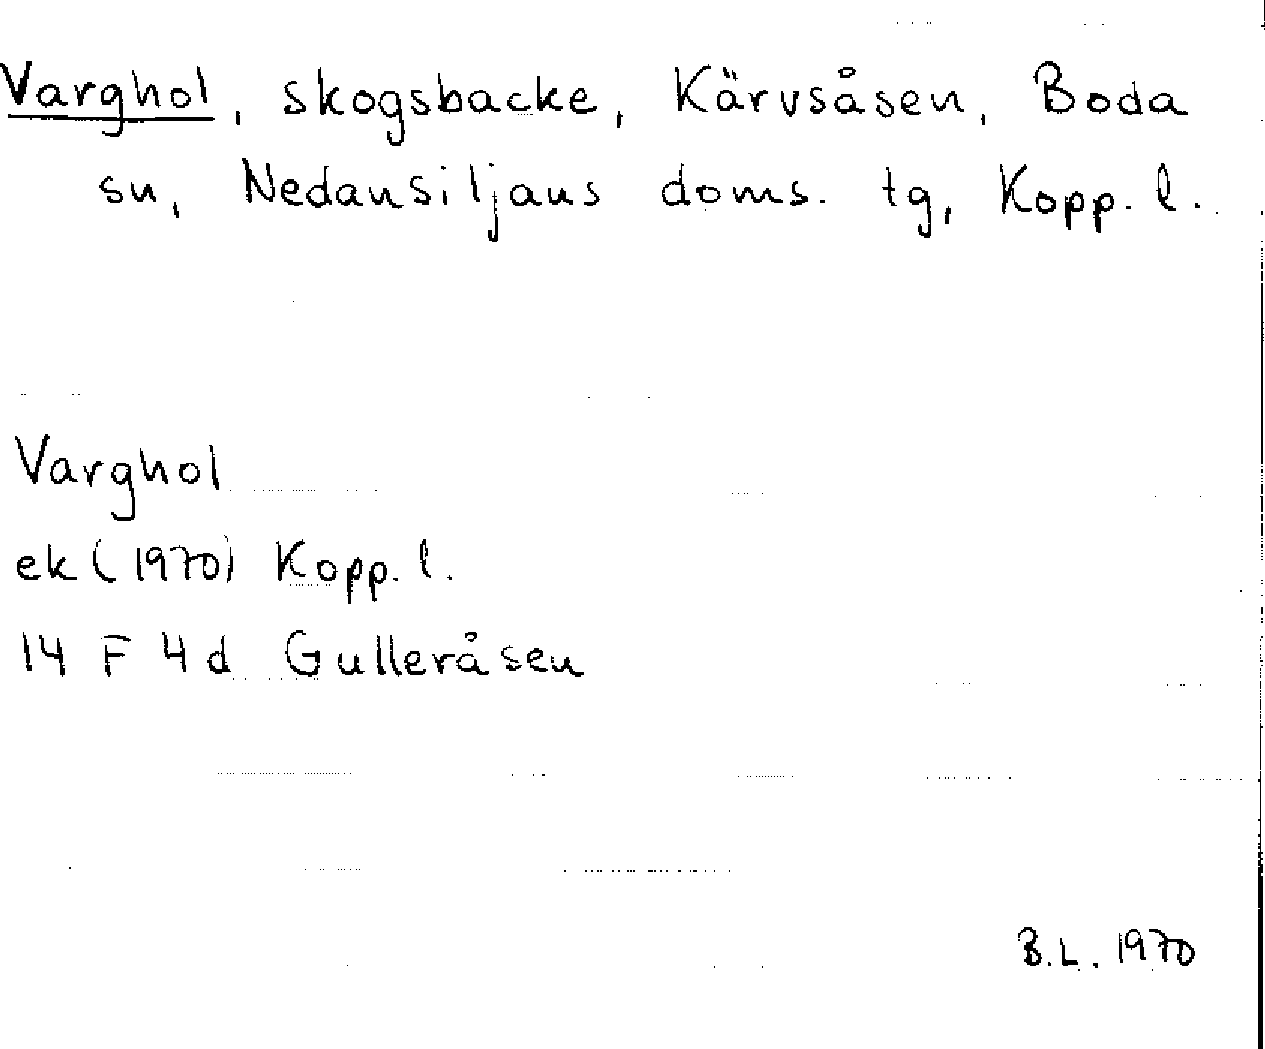 Varghol, skogsbacke, Kärvsåsen, Boda
sn, Nedansiljans doms. tg, Kopp. l.
Varghol
ek (1970) Kopp. l.
14 F 4 d Gulleråsen
B.L. 1970